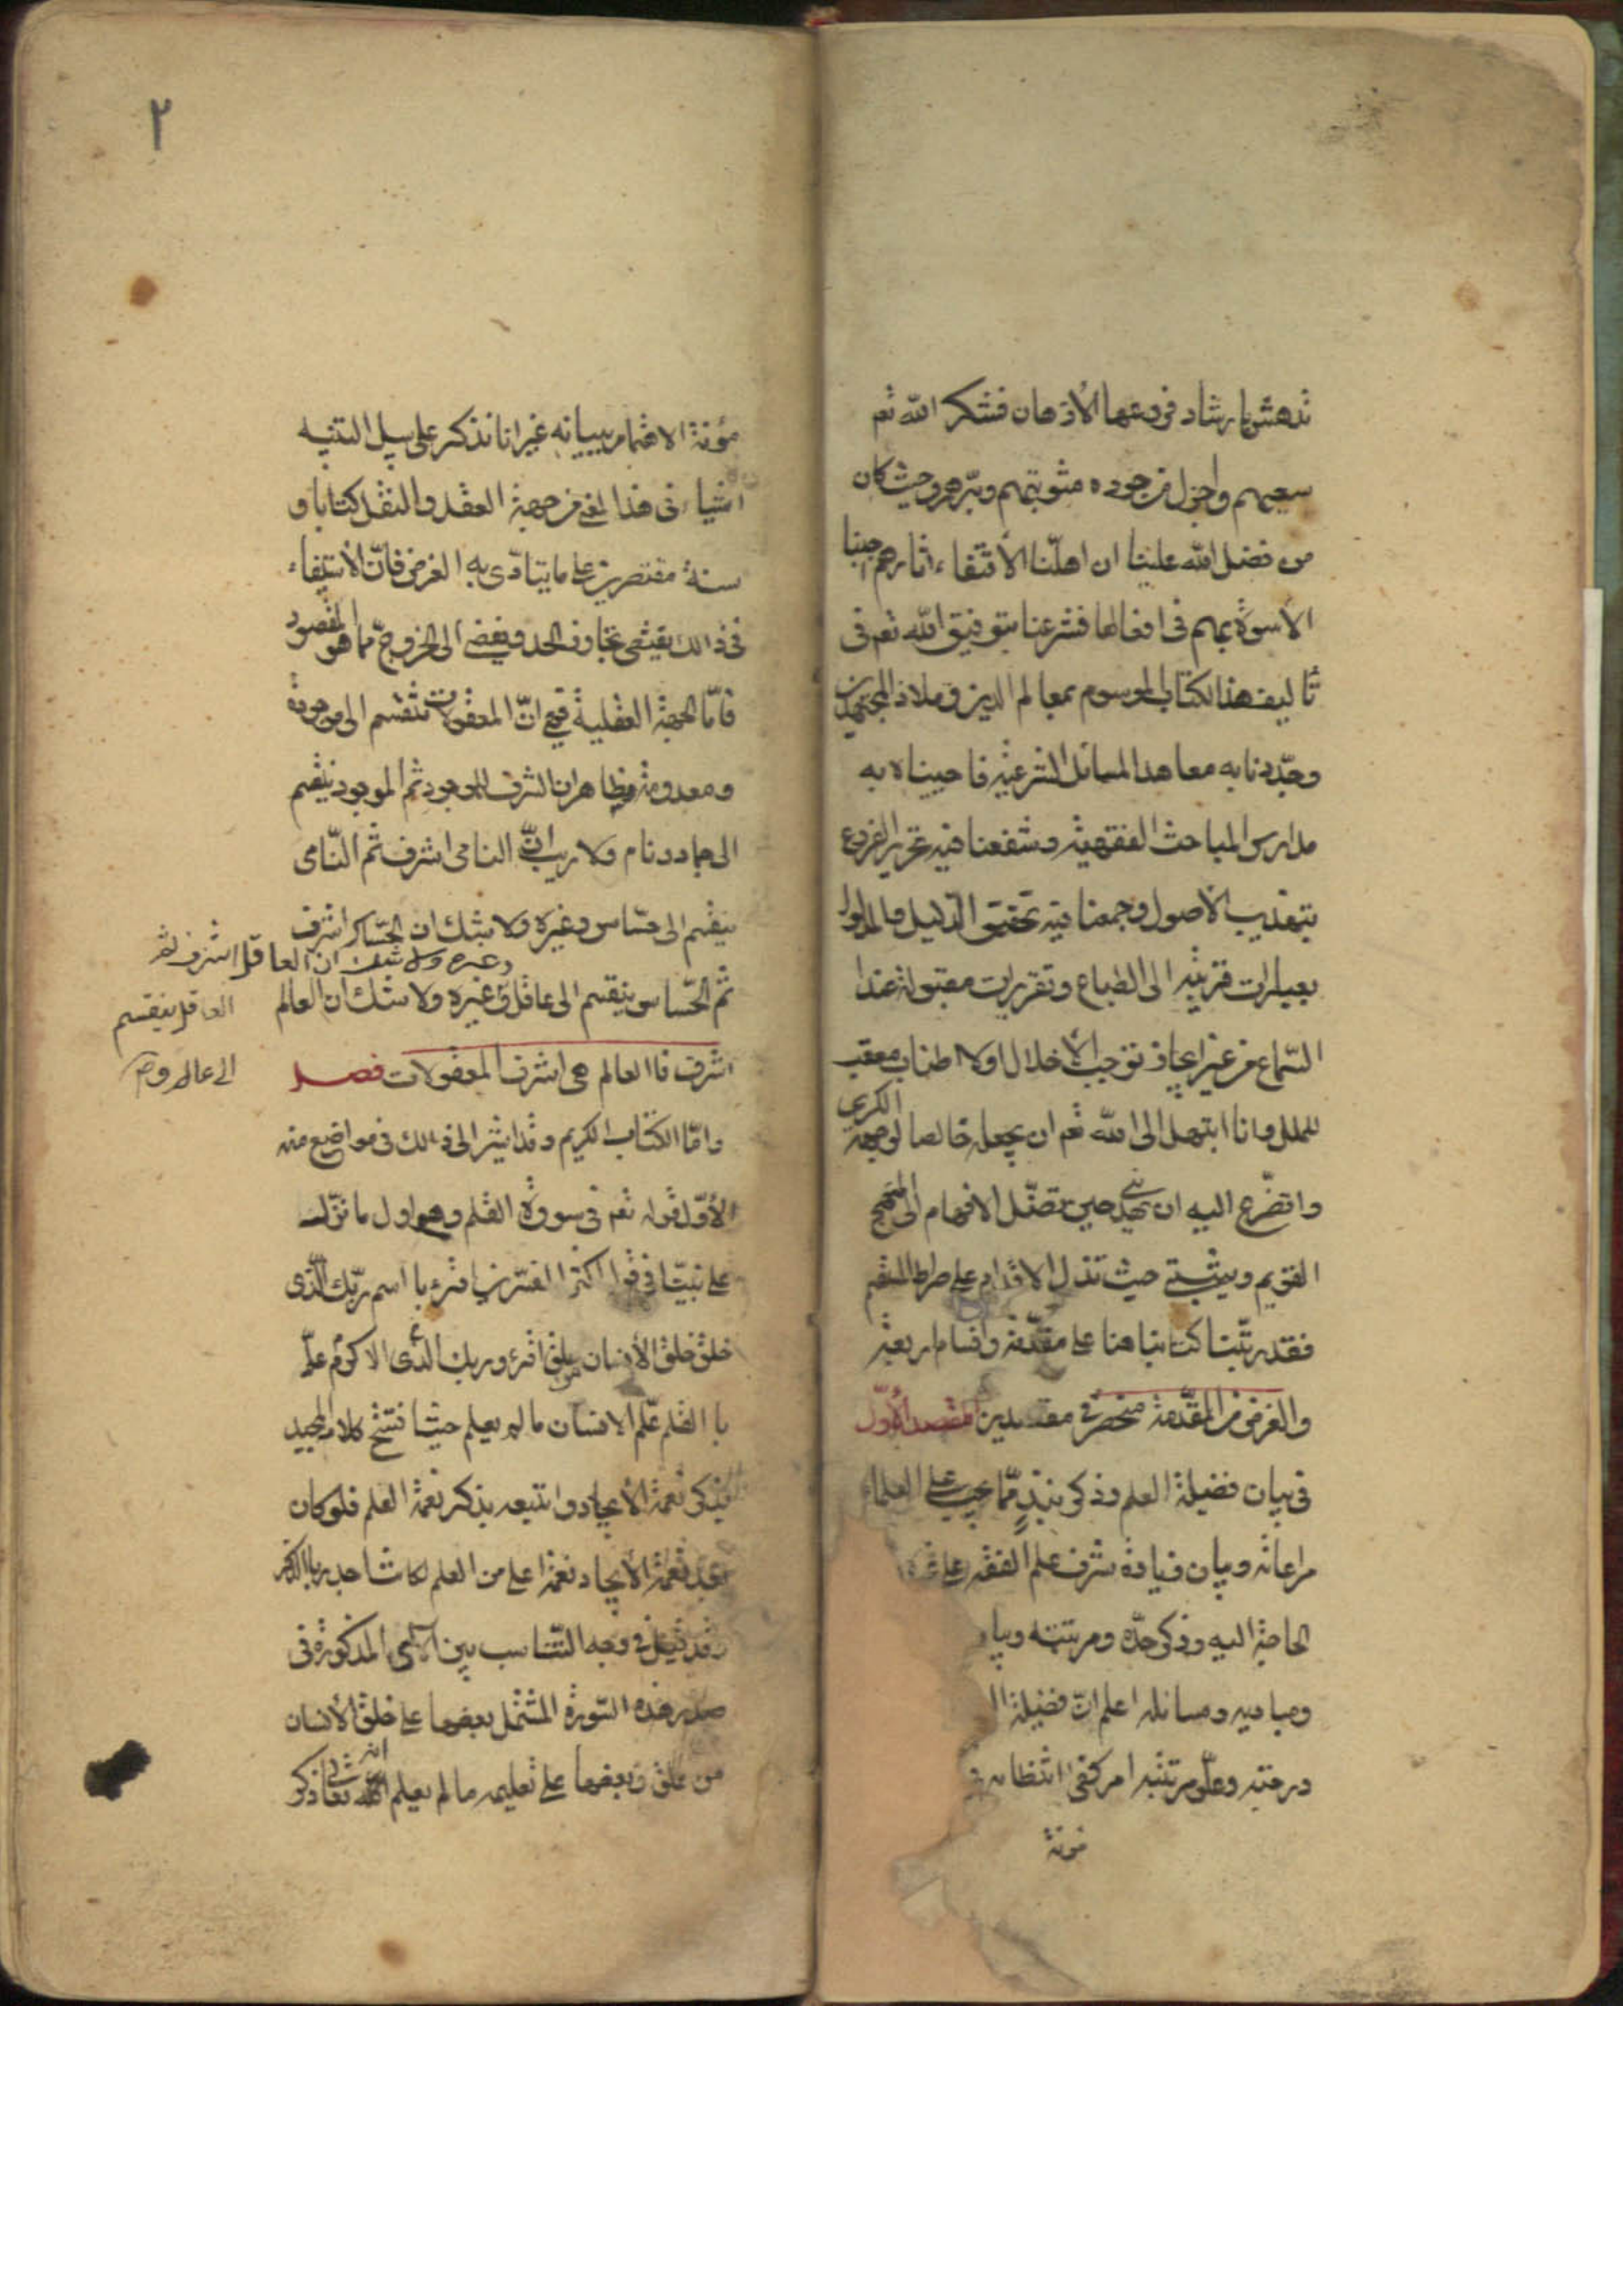 تدهش بارشاد فروعها الأذهان فشكر الله تعم
سعيهم واجزل من جوده مثوبتهم وبرهم وحيث كان
من فضل الله علينا ان اهلنا الأقتفاء اثارهم احببنا
الأسوة بهم في افعالها فشرعنا بتوفيق الله تعم في
تأليف هذا الكتاب الموسوم بمعالم الدين وملاذ المجتهدين
وجددنا به معاهد المسائل الشرعية فاحييناه به
مدارس المباحث الفقهية وشفعنا فيه تحرير الفروع
بتهذيب الأصول وجمعنا فيه تحقيق الدليل والمدلول
بعبارات قريبة الى الطباع وتقريرات مقبولة عند ا
السماع من غير ايجاز توجب الأخلال اولا اطناب معقب
للملل وانا ابتهل الى الله تعم ان يجعله خالصا لوجهه الكريم
واتضرع اليه ان يهديني حين تضل الافهام الى المنهج
القويم ويثبتني حيث تزل الاقدام على صراط المستقم
فقد رتبنا كتابنا هنا على مقدمة واقسام اربعة
والغرض من المقدمة منحصر في مقصدين المقصد الأول
في بيان فضيلة العلم وذكر نبذ مما يجب على العلماء
مراعاته وبيان زيادة شرف علم الفقه على غيره
الحاجة اليه وذكر حده ومرتبته وبيا
ومباديه ومسائله اعلم ان فضيلة ا
درجته وعلو مرتبته امر كفى انتظام
مونة
٢
مؤنة الاهتمام ببيانه غير انا نذكر على سبيل التنبيه
اشياء في هذا المعنى من جهة العقل والنقل كتابا و
سنة مقتصرين على ما يتادى به الغرض فان الأستيفاء
في ذالك يقتضي تجاوز الحد ويفضي الى الخروج مما هو المقصود
فاما الجهة العقلية فهي ان المعقولات تنقسم الى موجودة
ومعدومة وظاهر ان الشرف للموجود ثم الموجود ينقسم
الى جماد ونام ولا ريب ان النامي اشرف ثم النامي
ينقسم الى حساس وغيره ولا شك ان الحساس اشرف
ثم الحساس ينقسم الى عاقل وغيره ولا شك ان العالم
وغيره ولا شك ان العاقل اشرف ثم
العاقل ينقسم
الى عالم و
اشرف فاالعالم هي اشرف المعقولات فصل
واما الكتاب الكريم وقد اشير الى ذالك في مواضيع منه
الأول قوله تعم في سورة القلم وهو اول ما نزل
على نبينا في قول اكثر المفسرين اقرء باسم ربك الذي
خلق خلق الأنسان من علق اقرء وربك الذي الاكرم علم
باالقلم علم الانسان ما لم يعلم حيث افتتح كلامه المجيد
بذكر نعمة الأيجاد واتبعه بذكر نعمة العلم فلو كان
بعد نعمة الأيجاد نعمة اعلى من العلم لكانت اجدر باالذكر
وقد قيل في وجه التناسب بين الآي المذكورة في
صدر هذه السورة المشتمل بعضها على خلق الأنسان
من علق وبعضها على تعليمه ما لم يعلم انه تعا ذكر